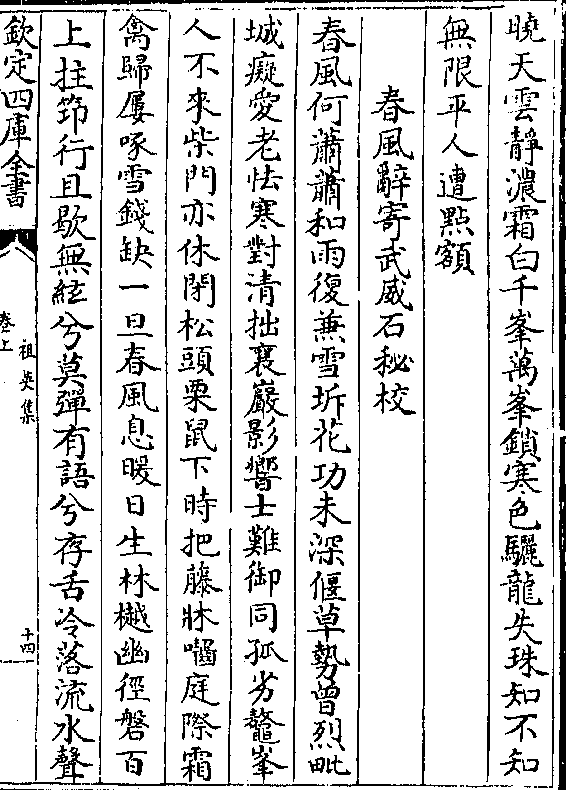 曉天雲靜濃霜白千峯萬峯鎖寒色驪龍失珠知不知
無限平人遭點額
春風辭寄武威石秘校
春風何蕭蕭和雨復兼雪坼花功未深偃草勢曾烈毗
城癡愛老怯寒對清拙襄巖影響士難御同孤劣鼇峯
人不來柴門亦休閉松頭栗鼠下時把藤牀囓庭際霜
禽歸屢啄雪錢缺一旦春風息暖日生林樾幽徑磐百
上拄筇行且歇無絃兮莫彈有語兮存舌冷落流水聲
欽定四庫全書
祖英集
卷上
十四